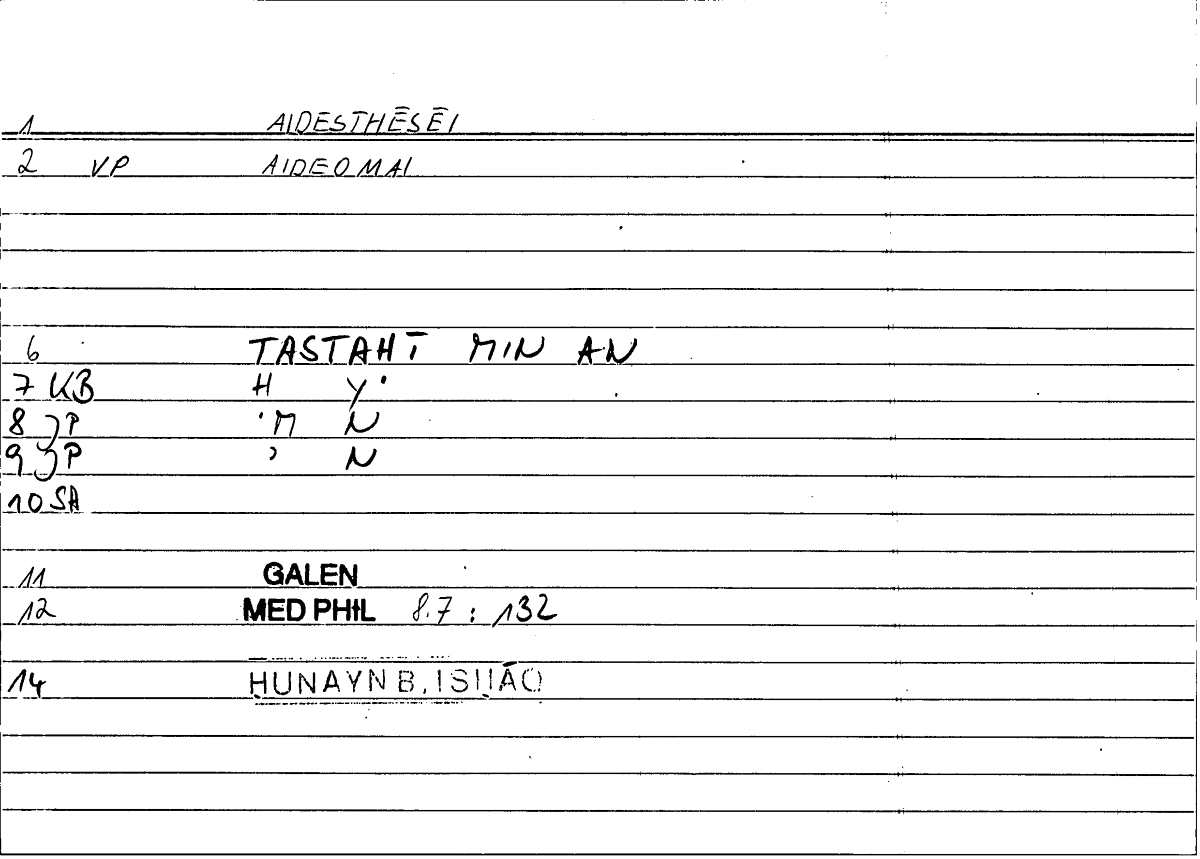 1 AIDESTHĒSĒI
2 VP AIDEOMAI
6 TASTAHĪ MIN AN
7 KB H Y'
8 JP 'M N
9 JP ' N
10 SA
11 GALEN
12 MED PHIL 8.7 : 132
14 ḤUNAYN B. ISḤĀQ